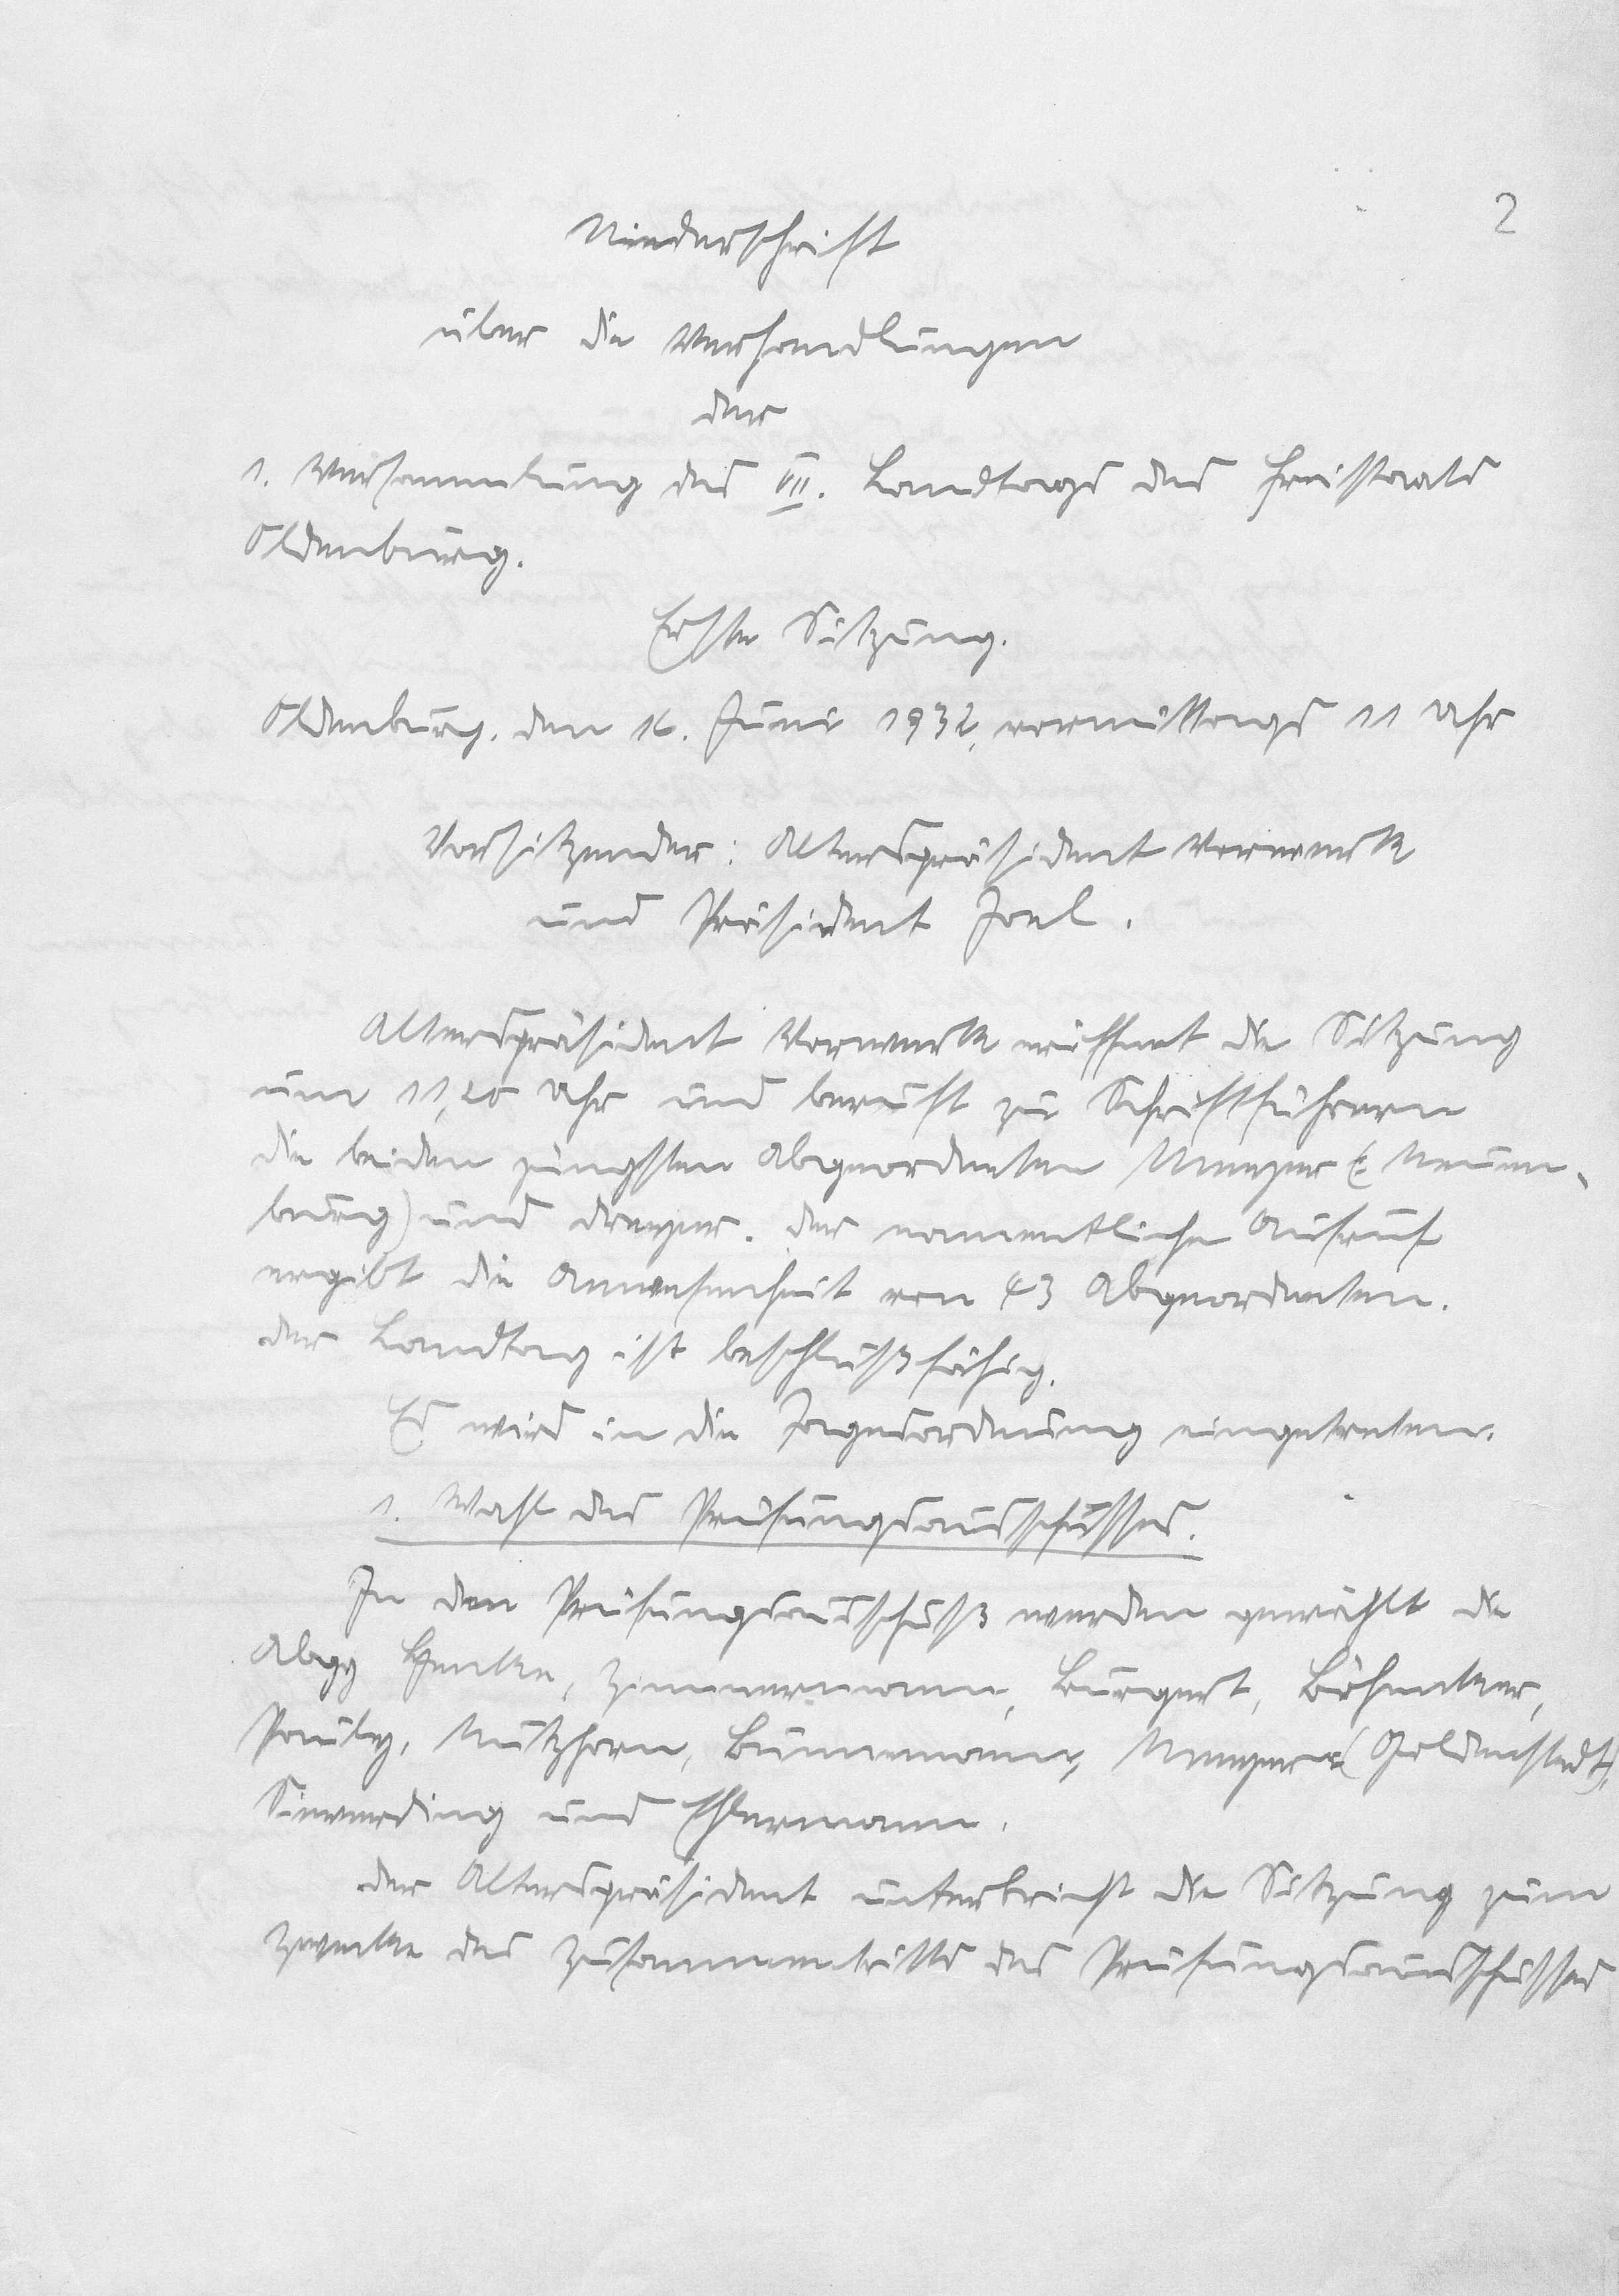 2
Niederschrift
über die Verhandlungen
der
1. Versammlung des VII. Landtags des Freistaats
Oldenburg.
Erste Sitzung.
Oldenburg, den 16. Juni 1932, vormittags 11 Uhr
Vorsitzender: Alterspräsident Vorwerk
und Präsident Joel.
Alterspräsident Vorwerk eröffnet die Sitzung
um 11,20 Uhr und beruft zu Schriftführern
die beiden jüngsten Abgeordneten Meyer (Neuen-
burg) und Dreyer. Der namentliche Aufruf
ergibt die Anwesenheit von 43 Abgeordneten.
Der Landtag ist beschlußfähig.
Es wird in die Tagesordnung eingetreten.
1. Wahl des Prüfungsausschusses.
In den Prüfungsausschuß werden gewählt die
Abgg Hentke, Zimmermann, Burgert, Böhmcker,
Pauly, Nutzhorn, Bunnemann, Meyer (Goldenstedt),
Sieverding und Ehlermann.
Der Alterspräsident unterbricht die Sitzung zum
Zwecke des Zusammentritts des Prüfungsausschusses